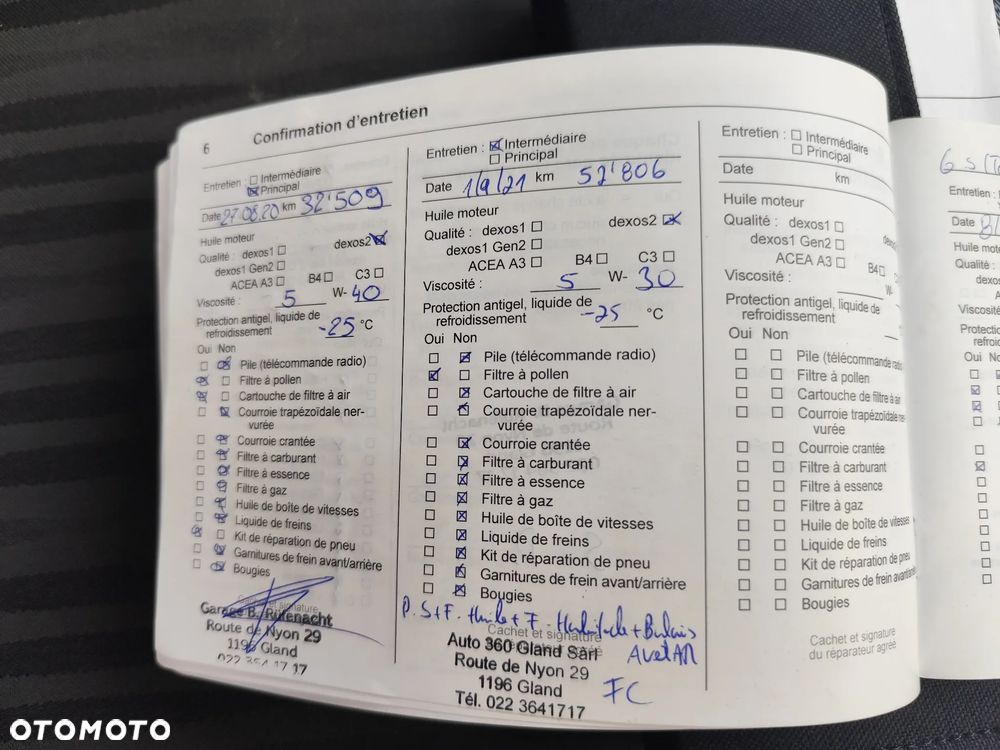 6 Confirmation d'entretien
Entretien : Intermédiaire
Principal
Date 27.08.20 km 32'509
Huile moteur
Qualité : dexos1 dexos2
dexos1 Gen2
ACEA A3 B4 C3
Viscosité : 5 W- 40
Protection antigel, liquide de
refroidissement -25 °C
Oui Non
Pile (télécommande radio)
Filtre à pollen
Cartouche de filtre à air
Courroie trapézoïdale ner-
vurée
Courroie crantée
Filtre à carburant
Filtre à essence
Filtre à gaz
Huile de boîte de vitesses
Liquide de freins
Kit de réparation de pneu
Garnitures de frein avant/arrière
Bougies
Cachet et signature
Garage B. Rüfenacht
Route de Nyon 29
1196 Gland
022 364 17 17
Entretien : Intermédiaire
Principal
Date 1/9/21 km 52'806
Huile moteur
Qualité : dexos1 dexos2
dexos1 Gen2
ACEA A3 B4 C3
Viscosité : 5 W- 30
Protection antigel, liquide de
refroidissement -25 °C
Oui Non
Pile (télécommande radio)
Filtre à pollen
Cartouche de filtre à air
Courroie trapézoïdale ner-
vurée
Courroie crantée
Filtre à carburant
Filtre à essence
Filtre à gaz
Huile de boîte de vitesses
Liquide de freins
Kit de réparation de pneu
Garnitures de frein avant/arrière
Bougies
P. S+F. Huile + F. + Balais
Av et AR
Cachet et signature
Auto 360 Gland Sàrl
Route de Nyon 29
1196 Gland
Tél. 022 3641717
FC
Entretien : Intermédiaire
Principal
Date km
Huile moteur
Qualité : dexos1
dexos1 Gen2
ACEA A3 B4
Viscosité : W-
Protection antigel, liquide de
refroidissement
Oui Non
Pile (télécommande radio)
Filtre à pollen
Cartouche de filtre à air
Courroie trapézoïdale ner-
vurée
Courroie crantée
Filtre à carburant
Filtre à essence
Filtre à gaz
Huile de boîte de vitesses
Liquide de freins
Kit de réparation de pneu
Garnitures de frein avant/arrière
Bougies
Cachet et signature
du réparateur agréé
Entretien :
Date
Huile
Qualité :
Viscosité
Oui
OTOMOTO